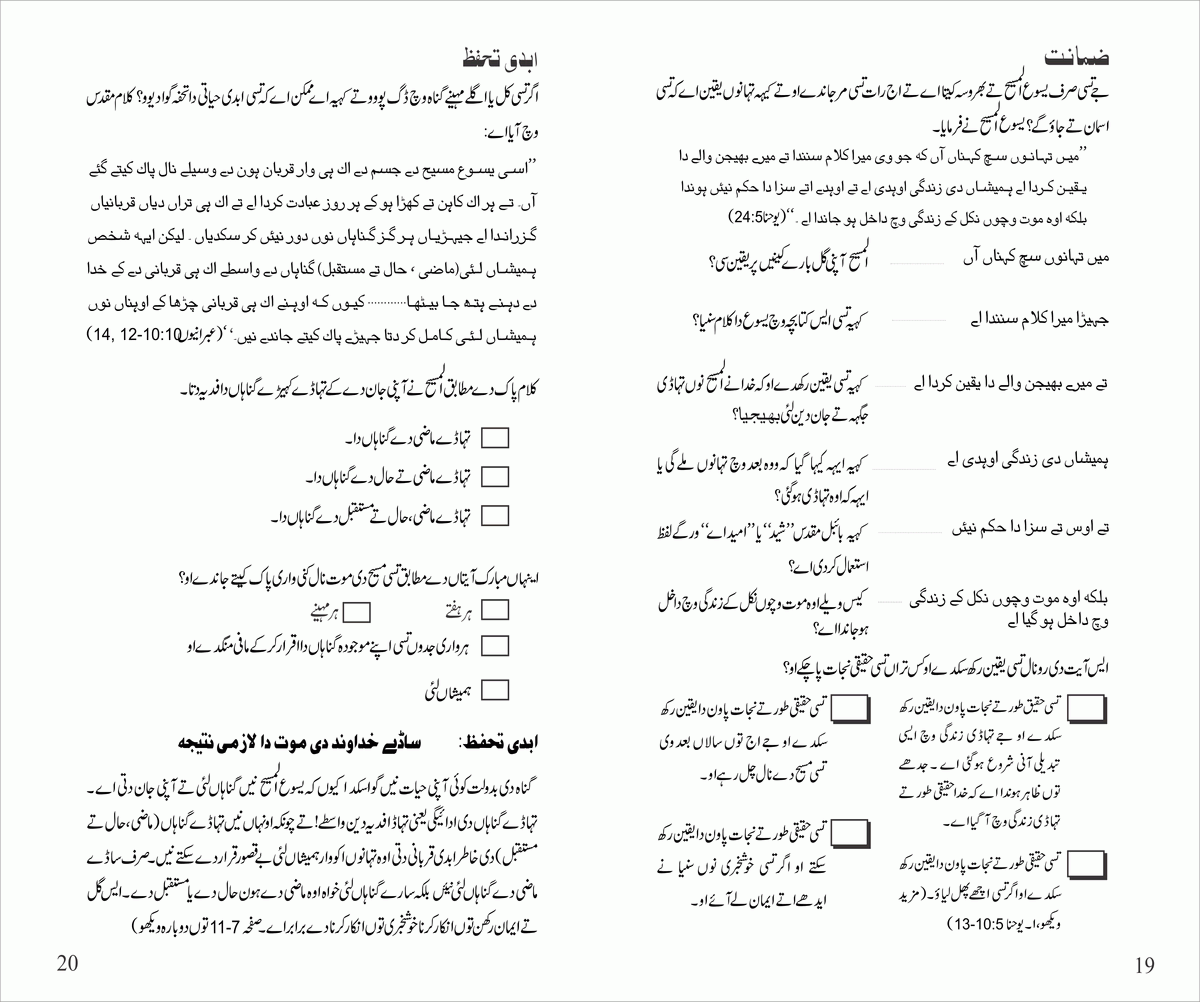 ضمانت
جے تسی صرف یسوع المسیح تے بھروسہ کیتا اے تے اج رات تسی مر جاندے او تے کیہہ تہانوں یقین اے کہ تسی
اسمان تے جاؤ گے؟ یسوع المسیح نے فرمایا۔
’’میں تہانوں سچ کہناں آں کہ جو وی میرا کلام سنندا تے میرے بھیجن والے دا
یقین کردا اے ہمیشاں دی زندگی اوہدی اے تے اوہدے اتے سزا دا حکم نیئں ہوندا
بلکہ اوہ موت وچوں نکل کے زندگی وچ داخل ہو جاندا اے۔‘‘(یوحنا24:5)
میں تہانوں سچ کہناں آں ــــــــ المسیح آپنی گل بارے کینیں پر یقین سی؟
جہیڑا میرا کلام سنندا اے ــــــــ کیہہ تسی ایس کتابچہ وچ یسوع دا کلام سنیا؟
تے میرے بھیجن والے دا یقین کردا اے ــــــــ کیہہ تسی یقین رکھدے او کہ خدا نے المسیح نوں تہاڈی
جگہہ تے جان دین لئی بھیجیا؟
ہمیشاں دی زندگی اوہدی اے ــــــــ کیہہ ایہہ کیہا گیا کہ ووہ بعد وچ تہانوں ملے گی یا
ایہہ کہ اوہ تہاڈی ہوگئی؟
تے اوس تے سزا دا حکم نیئں ــــــــ کیہہ بائبل مقدس ’’شید‘‘ یا ’’امید اے‘‘ ورگے لفظ
استعمال کردی اے؟
بلکہ اوہ موت وچوں نکل کے زندگی ــــــــ کیس ویلے اوہ موت وچوں نکل کے زندگی وچ داخل
وچ داخل ہوگیا اے
ہو جاندا اے؟
ایس آیت دی رو نال تسی یقین رکھ سکدے او کس تراں تسی حقیقی نجات پا چکے او؟
تسی حقیق طور تے نجات پاون دا یقین رکھ
سکدے او جے تہاڈی زندگی وچ ایسی
تبدیلی آنی شروع ہوگئی اے۔ جدھے
توں ظاہر ہوندا اے کہ خدا حقیقی طور تے
تہاڈی زندگی وچ آ گیا اے۔
تسی حقیقی طور تے نجات پاون دا یقین رکھ
سکدے او اگر تسی اچھے پھل لیاؤ۔ (مزید
ویکھو، ا۔ یوحنا 10:5-13)
تسی حقیقی طور تے نجات پاون دا یقین رکھ
سکدے او جے اج توں سالاں بعد وی
تسی مسیح دے نال چل رہے او۔
تسی حقیقی طور تے نجات پاون دا یقین رکھ
سکتے او اگر تسی خوشخبری نوں سنیا نے
ایدھے اتے ایمان لے آئے او۔
19
ابدی تحفظ
اگر تسی کل یا اگلے مہینے گناہ وچ ڈگ پووو تے کیہہ اے ممکن اے کہ تسی ابدی حیاتی دا تحفہ گوا دیوو؟ کلام مقدس
وچ آیا اے:
’’اسی یسوع مسیح دے جسم دے اک ہی وار قربان ہون دے وسیلے نال پاک کیتے گئے
آں۔ تے ہر اک کاہن تے کھڑا ہو کے ہر روز عبادت کردا اے تے اک ہی تراں دیاں قربانیاں
گزراندا اے جیہڑیاں ہر گز گناہاں نوں دور نیئں کر سکدیاں۔ لیکن ایہہ شخص
ہمیشاں لئی(ماضی، حال تے مستقبل) گناہاں دے واسطے اک ہی قربانی دے کے خدا
دے دہنے ہتھ جا بیٹھا............ کیوں کہ اوہنے اک ہی قربانی چڑھا کے اوہناں نوں
ہمیشاں لئی کامل کر دتا جہیڑے پاک کیتے جاندے نیں۔‘‘(عبرانیوں10:10-12 ,14)
کلام پاک دے مطابق المسیح نے آپنی جان دے کے تہاڈے کہیڑے گناہاں دا فدیہ دتا۔
تہاڈے ماضی دے گناہاں دا۔
تہاڈے ماضی تے حال دے گناہاں دا۔
تہاڈے ماضی، حال تے مستقبل دے گناہاں دا۔
اینہاں مبارک آیتاں دے مطابق تسی مسیح دی موت نال کنی واری پاک کیتے جاندے او؟
ہر ہفتے ہر مہینے
ہر واری جدوں تسی اپنے موجودہ گناہاں دا اقرار کر کے مافی منگدے او
ہمیشاں لئی
ابدی تحفظ: ساڈے خداوند دی موت دا لازمی نتیجہ
گناہ دی بدولت کوئی آپنی حیات نیں گوا سکدا کیوں کہ یسوع المسیح نیں گناہاں لئی تے آپنی جان دتی اے۔
تہاڈے گناہاں دی ادائیگی یعنی تہاڈا فدیہ دین واسطے! تے چونکہ اونہاں نیں تہاڈے گناہاں (ماضی، حال تے
مستقبل) دی خاطر ابدی قربانی دتی اوہ تہانوں اکو وار ہمیشاں لئی بے قصور قرار دے سکتے نیں۔ صرف ساڈے
ماضی دے گناہاں لئی نیئں بلکہ سارے گناہاں لئی خواہ اوہ ماضی دے ہون حال دے یا مستقبل دے۔ ایس گل
تے ایمان رکھن توں انکار کرنا خوشخبری توں انکار کرنا دے برابر اے۔ صفحہ 7-11 توں دوبارہ ویکھو)
20